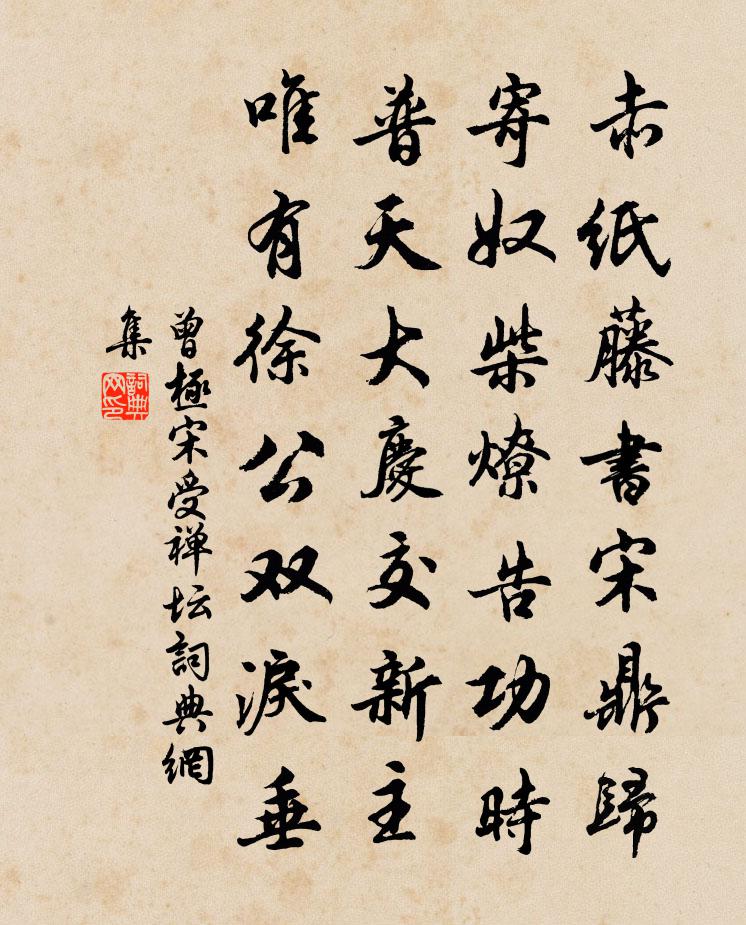 赤纸藤書宋鼎歸
寄奴柴燎告功時
普天大慶交新主
唯有徐公双淚垂
曾極宋受禅坛詞典網
集
詞典
网印